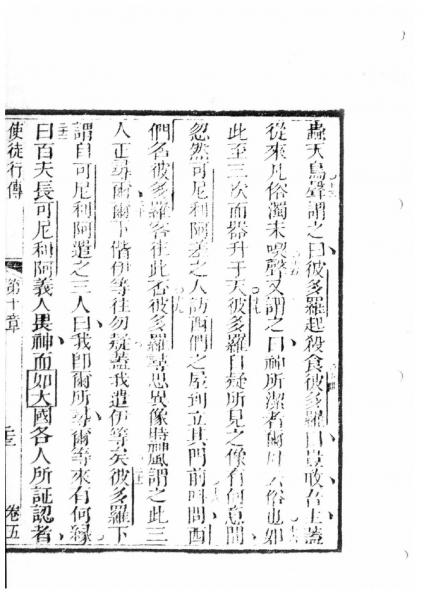 蟲天鳥聲謂之曰彼多羅起殺食彼多羅曰豈敢吾主蓋
從來凡俗濁未喫聲又謂之曰神所潔者爾毋云俗也如
此至三次而器升于天彼多羅自疑所見之像有何意間
忽然可尼利阿差之人訪酉們之屋到立其門前呌問酉
們名彼多羅客徃此否彼多羅對思異像時神風謂之此三
人正尋爾爾下偕伊等徃勿疑蓋我遣伊等矣彼多羅下
謂自可尼利阿遣之三人曰我卽爾所尋爾等來有何緣
曰百夫長可尼利阿義人畏神而如大國各人所証認者
使徒行傳
第十章
卷五